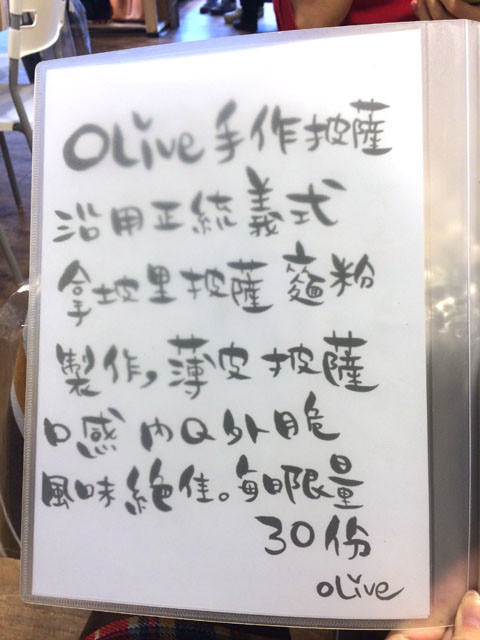 OLive 手作披薩
沿用正統義式
拿坡里披薩麵粉
製作,薄皮披薩
口感內Q外脆
風味絕佳。每日限量
30份
OLive